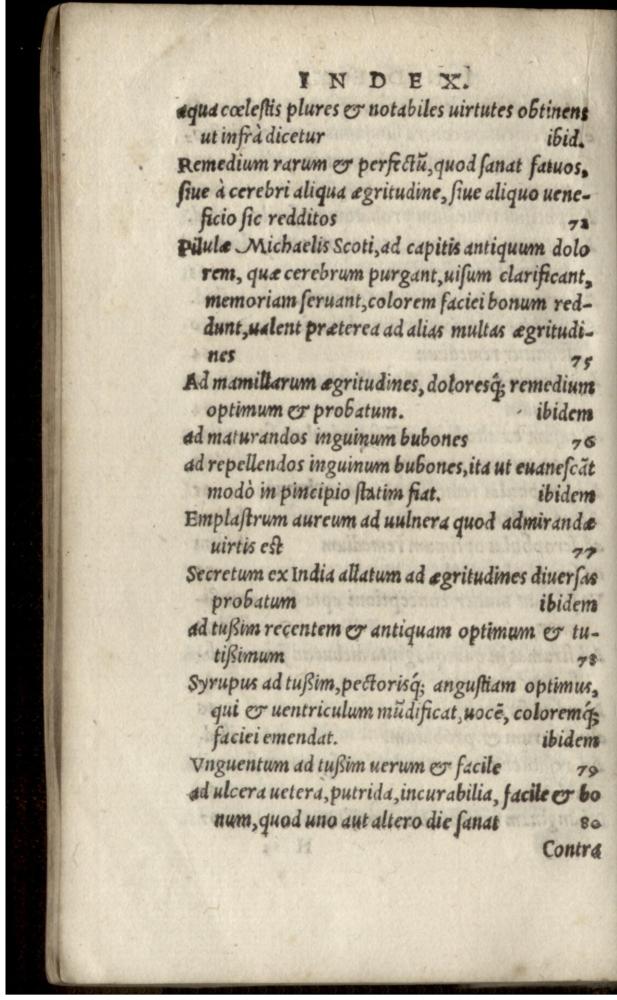 INDEX.
aqua cœlestis plures & notabiles uirtutes obtinens
ut infrà dicetur ibid.
Remedium rarum & perfectũ, quod sanat fatuos,
siue à cerebri aliqua ægritudine, siue aliquo uene-
ficio sic redditos 72
Pilulæ Michaelis Scoti, ad capitis antiquum dolo
rem, quæ cerebrum purgant, uisum clarificant,
memoriam seruant, colorem faciei bonum red-
dunt, ualent præterea ad alias multas ægritudi-
nes 75
Ad mamillarum ægritudines, doloresq́; remedium
optimum & probatum. ibidem
ad maturandos inguinum bubones 76
ad repellendos inguinum bubones, ita ut euanescãt
modò in pincipio statim fiat. ibidem
Emplastrum aureum ad uulnera quod admirandæ
uirtis est 77
Secretum ex India allatum ad ægritudines diuersas
probatum ibidem
ad tußim recentem & antiquam optimum & tu-
tißimum 78
Syrupus ad tußim, pectorisq́; angustiam optimus,
qui & uentriculum mũdificat, uocẽ, coloremq́;
faciei emendat. ibidem
Vnguentum ad tußim uerum & facile 79
ad ulcera uetera, putrida, incurabilia, facile & bo
num, quod uno aut altero die sanat 80
Contra